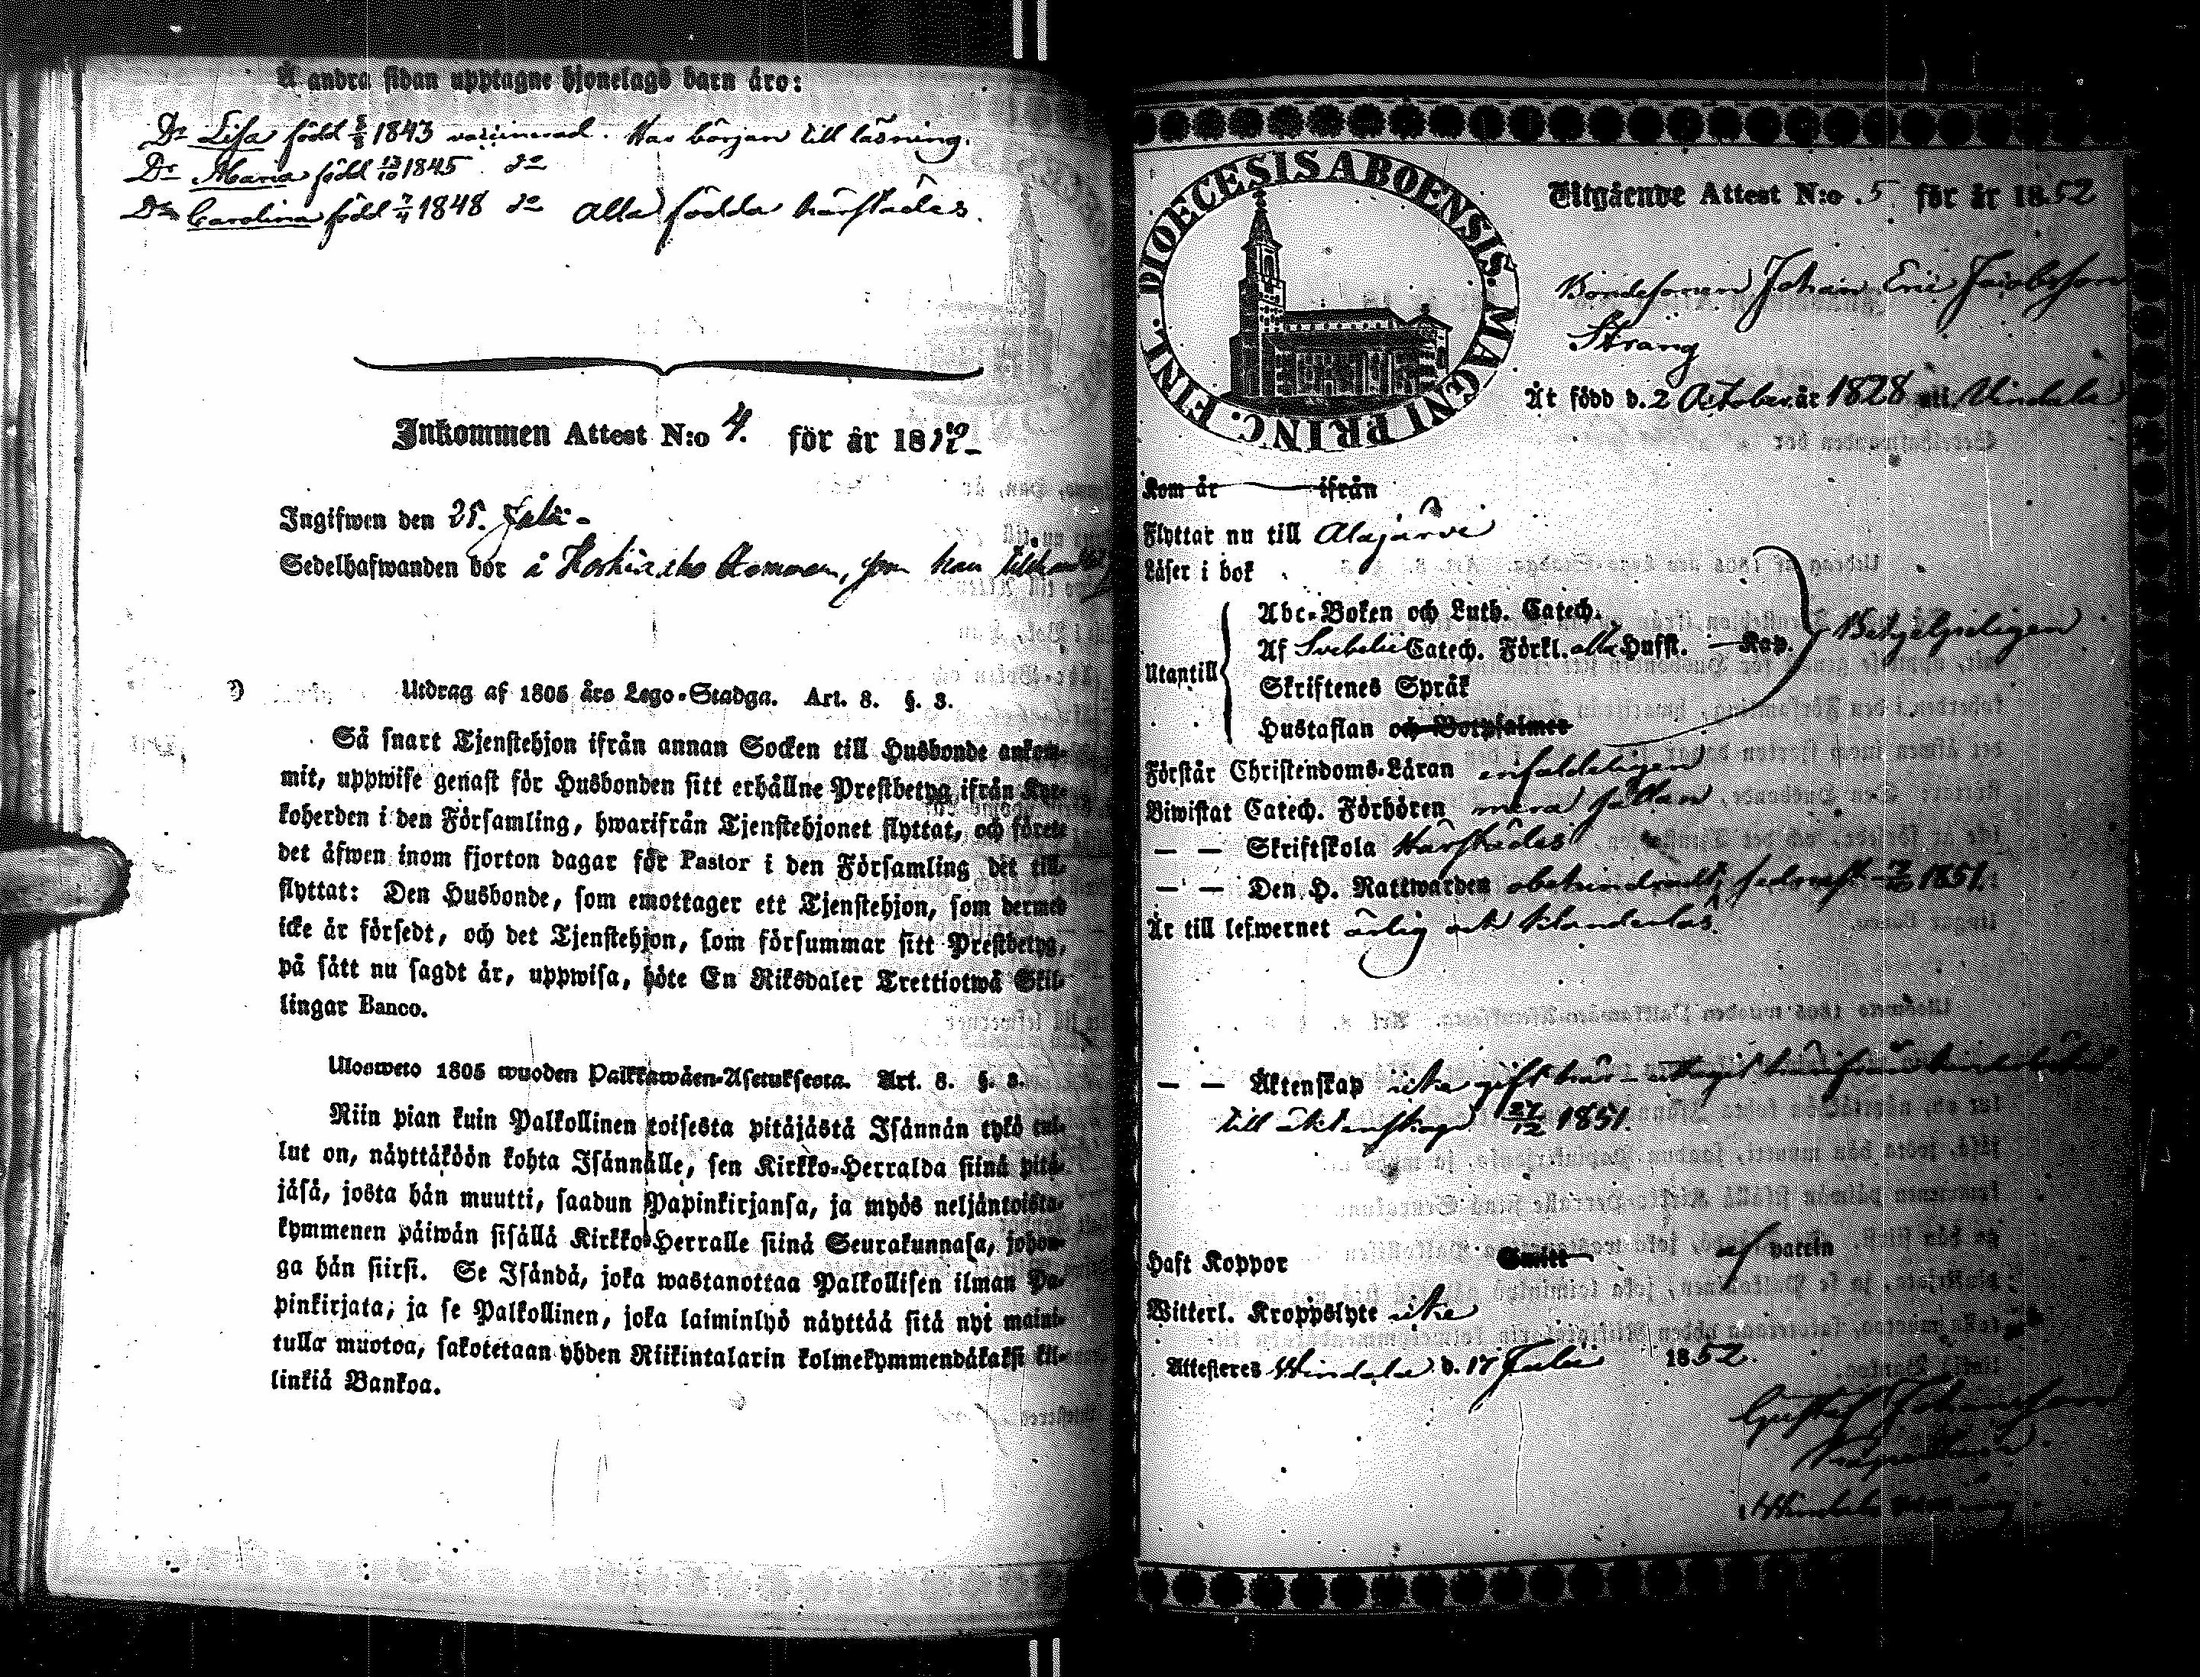 Å andra sidan upptagne hjonelags barn äro:
Dr Lisa född 1843 vaccinerad. Har början till läsning.
Dr Maria född 13/10 1845 do
Dr Carolina född 7/4 1848 do Alla födda härstädes.
Inkommen Attest N:o 4. för år 1852
Ingifwen den 25. Juli
Sedelhafwanden bor å hemman, som han
Utdrag af 1805 års Lego-Stadga. Art. 8. §. 3.
Så snart Tjenstehjon ifrån annan Socken till Husbonde ankom-
mit, uppwise genast för Husbonden sitt erhållne Prestbetyg ifrån Kyr-
koherden i den Församling, hwarifrån Tjenstehjonet flyttat, och förete
det äfwen inom fjorton dagar för Pastor i den Församling dit till-
flyttat: Den Husbonde, som emottager ett Tjenstehjon, som dermed
icke är försedt, och det Tjenstehjon, som försummar sitt Prestbetyg,
på sätt nu sagdt är, uppwisa, böte En Riksdaler Trettiotwå Skil-
lingar Banco.
Ulosweto 1805 wuoden Palkkawäen-Asetuksesta. Art. 8. §. 3.
Niin pian kuin Palkollinen toisesta pitäjästä Isännän tykö tul-
lut on, näyttäköön kohta Isännälle, sen Kirkko-Herralda siinä pitä-
jäsä, josta hän muutti, saadun Papinkirjansa, ja myös neljäntoista-
kymmenen päiwän sisällä Kirkko-Herralle siinä Seurakunnasa, johon-
ga hän siirsi. Se Isändä, joka wastanottaa Palkollisen ilman Pa-
pinkirjata, ja se Palkollinen, joka laiminlyö näyttää sitä nyt maini-
tulla muotoa, sakotetaan yhden Riikintalarin kolmekymmendäkaksi kil-
linkiä Bankoa.
DIOECESIS ABOENSIS. MAGNI PRINC. FINL.
Utgående Attest N:o 5 för år 1852
Bondesonen Johan Eric Jacobsson
Sträng
Är född d. 2 October år 1828 uti Vindala
Kom år ifrån
Flyttar nu till Alajärvi
Läser i bok
Utantill
Abc-Boken och Luth. Catech.
Af Svebelii Catech. Förkl. alla Hufst. Kap.
Skriftenes Språk
Hustaflan och Botpsalmer
Behjelpeligen
Förstår Christendoms-Läran enfaldeligen
Biwistat Catech. Förhören mera sällan
— — Skriftskola härstädes
— — Den H. Nattwarden obehindradt, sednast 1851.
Är till lefwernet ärlig och klanderlös.
— — Äktenskap icke gift här – uttagit härifrån hinderslöshet
till äktenskap 27/12 1851.
Haft Koppor Smitt af vaccin
Witterl. Kroppslyte icke
Attesteres Windala d. 17 Julii 1852.
Gustaf Johansson